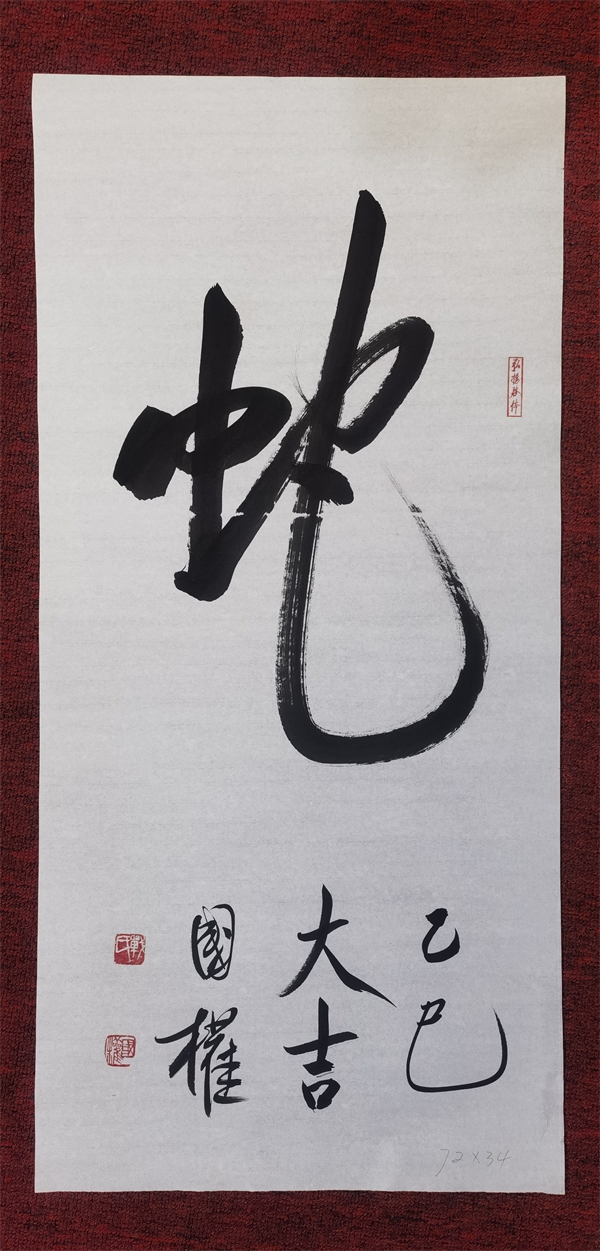 蛇
乙巳
大吉
國權
72×34